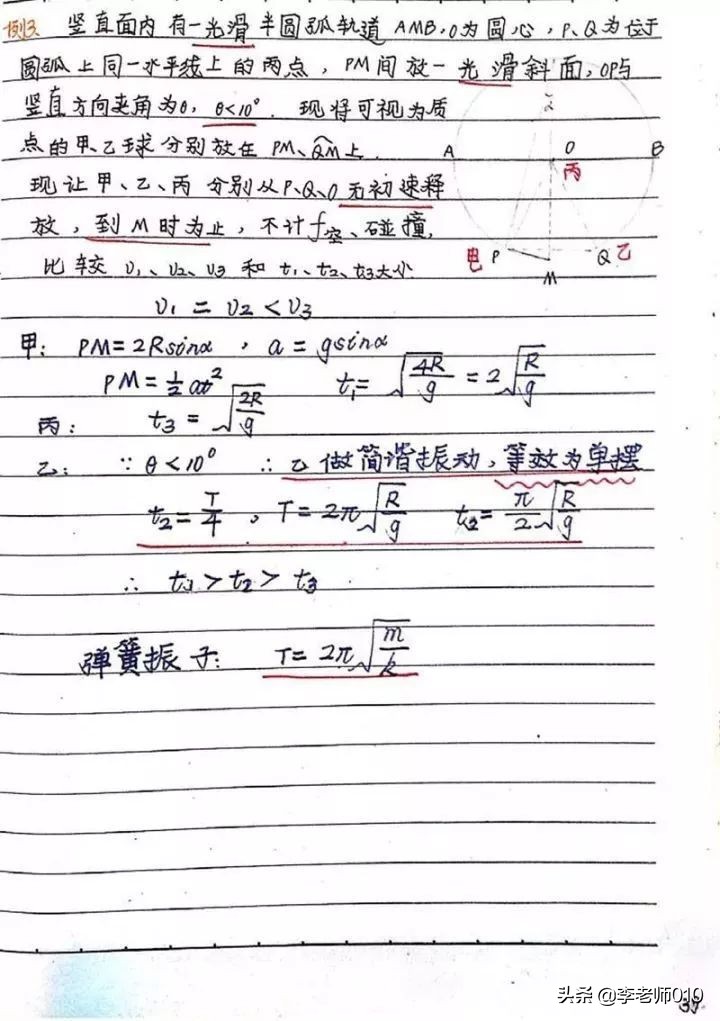 例3. 竖直面内有一光滑半圆弧轨道AMB,O为圆心,P、Q为位于
圆弧上同一水平线上的两点,PM间放一光滑斜面,OP与
竖直方向夹角为θ,θ<10°.现将可视为质
点的甲、乙球分别放在PM、QM上.
现让甲、乙、丙分别从P、Q、O无初速释
放,到M时为止,不计f空、碰撞,
比较 v₁、v₂、v₃ 和 t₁、t₂、t₃大小.
A
O
B
丙
α
P
Q 乙
M
v₁ = v₂ < v₃
甲: PM=2Rsinα , a = gsinα
PM=½at² t₁=√(4R/g) = 2√(R/g)
丙: t₃ = √(2R/g)
乙: ∵ θ<10° ∴乙做简谐振动,等效为单摆
t₂=T/4 , T=2π√(R/g) t₂=π/2√(R/g)
∴ t₁ > t₂ > t₃
弹簧振子: T=2π√(m/k)
头条 @李老师010